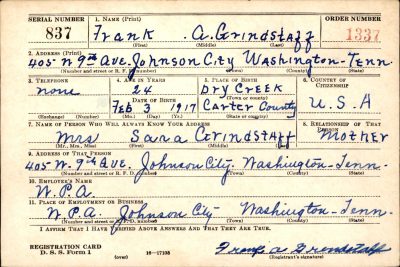 SERIAL NUMBER 1. NAME (Print) ORDER NUMBER
837 Frank A. Grindstaff 1337
(First) (Middle) (Last)
2. ADDRESS (Print)
405 W 9th Ave. Johnson City Washington - Tenn.
(Number and street or R. F. D. number) (Town) (County) (State)
3. TELEPHONE 4. AGE IN YEARS 5. PLACE OF BIRTH 6. COUNTRY OF CITIZENSHIP
none 24 Dry Creek
DATE OF BIRTH (Town or county)
Feb 3 1917 Carter County U.S.A
(Exchange) (Number) (Mo.) (Day) (Yr.) (State or country)
7. NAME OF PERSON WHO WILL ALWAYS KNOW YOUR ADDRESS 8. RELATIONSHIP OF THAT PERSON
Mrs Sara Grindstaff Mother
(Mr., Mrs., Miss) (First) (Middle) (Last)
9. ADDRESS OF THAT PERSON
405 W. 9th Ave. Johnson City. Washington - Tenn.
(Number and street or R. F. D. number) (Town) (County) (State)
10. EMPLOYER'S NAME
W.P.A.
11. PLACE OF EMPLOYMENT OR BUSINESS
W.P.A. Johnson City Washington - Tenn.
(Number and street or R. F. D. number) (Town) (County) (State)
I AFFIRM THAT I HAVE VERIFIED ABOVE ANSWERS AND THAT THEY ARE TRUE.
REGISTRATION CARD
D. S. S. Form 1 (over) 16—17105 Frank A Grindstaff
(Registrant's signature)